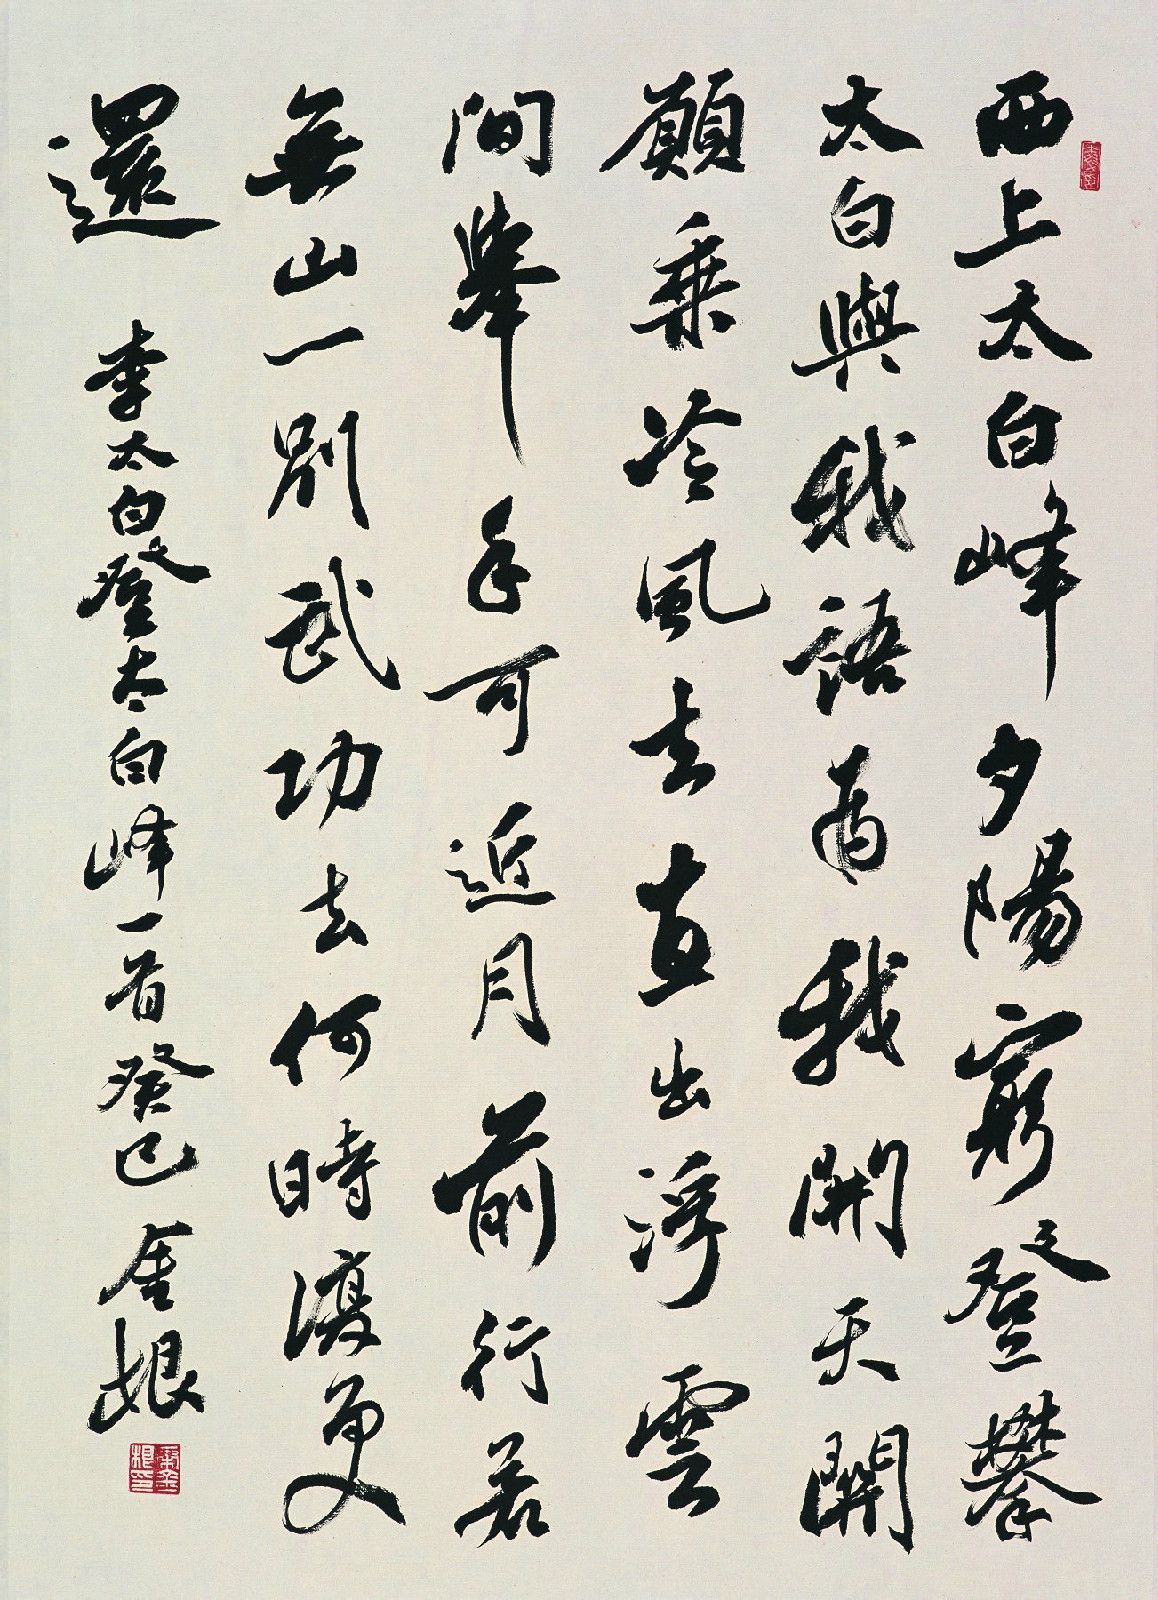 西上太白峰夕陽窮登攀
太白與我語為我開天關
願乘冷風去直出浮雲
間舉手可近月前行若
無山一別武功去何時復更
還 李太白登太白峰一首癸巳金根
秦金根印